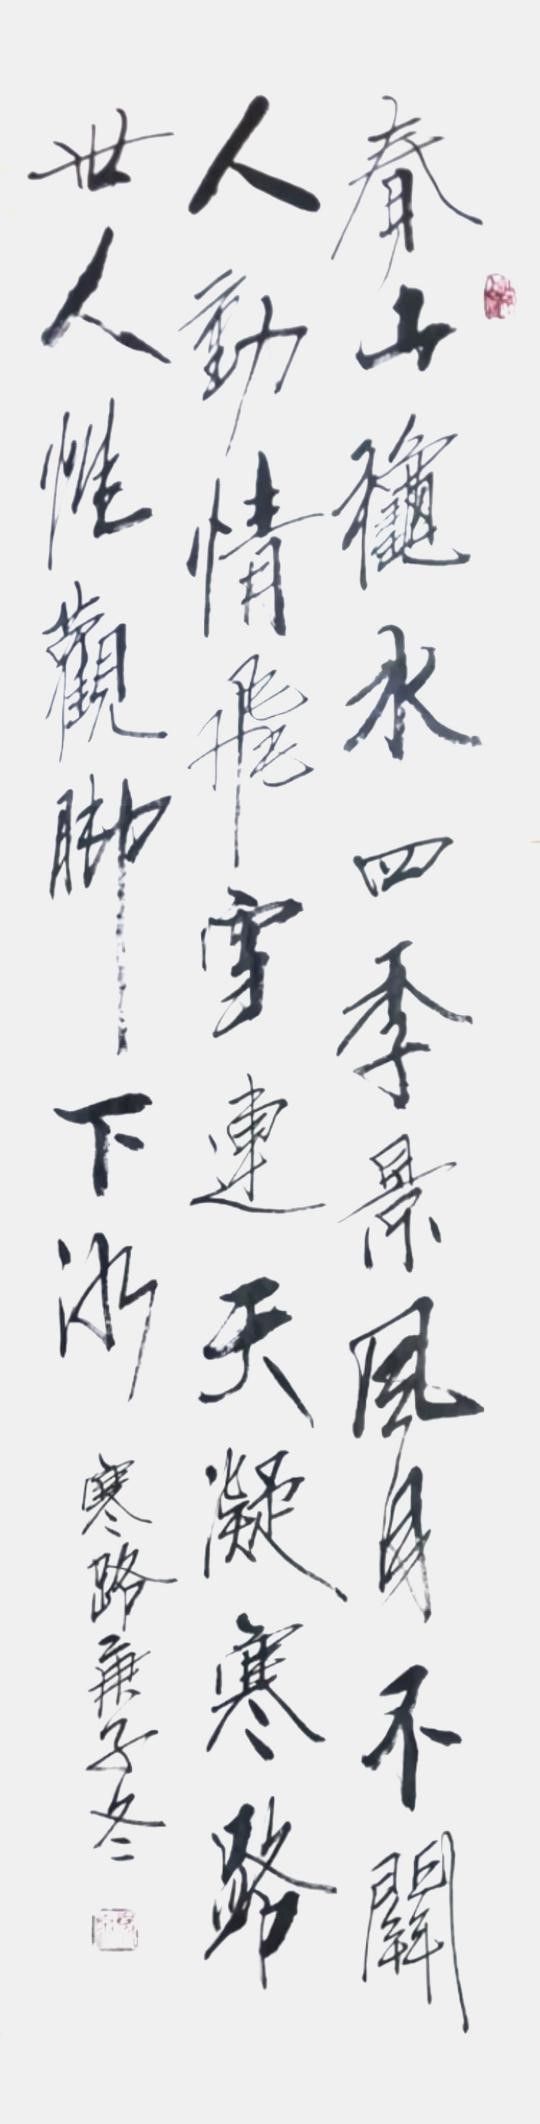 春山秋水四季景風月不關
人動情飛雪連天凝寒路
世人惟觀腳下冰
寒路庚子冬